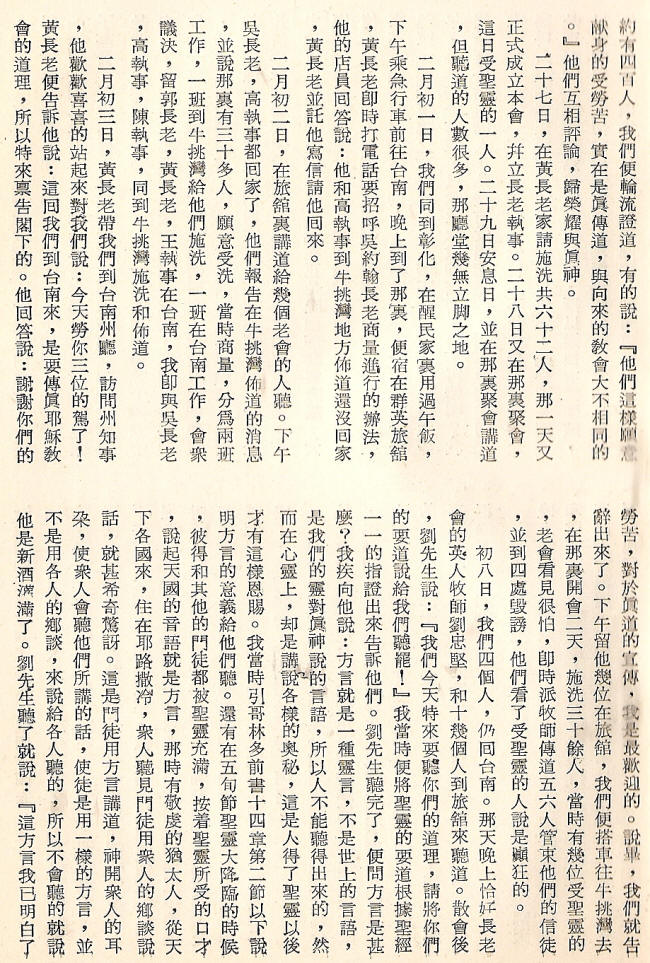 約有四百人，我們便輪流證道，有的說：『他們這樣願意
献身的受勞苦，實在是眞傳道，與向來的敎會大不相同的
。』他們互相評論，歸榮耀與眞神。
二十七日，在黃長老家請施洗共六十二人，那一天又
正式成立本會，幷立長老執事。二十八日又在那裏聚會，
這日受聖靈的一人。二十九日安息日，並在那裏聚會講道
，但聽道的人數很多，那廳堂幾無立脚之地。
二月初一日，我們同到彰化，在醒民家裏用過午飯，
下午乘急行車前往台南，晚上到了那裏，便宿在群英旅舘
，黃長老卽時打電話要招呼吳約翰長老商量進行的辦法，
他的店員回答說：他和高執事到牛挑灣地方佈道還沒回家
，黃長老並託他寫信請他回來。
二月初二日，在旅舘裏講道給幾個老會的人聽。下午
吳長老，高執事都回家了，他們報告在牛挑灣佈道的消息
，並說那裏有三十多人，願意受洗，當時商量，分爲兩班
工作，一班到牛挑灣給他們施洗，一班在台南工作，會衆
議決，留郭長老，黃長老，王執事在台南，我卽與吳長老
，高執事，陳執事，同到牛挑灣施洗和佈道。
二月初三日，黃長老帶我們到台南州廳，訪問州知事
，他歡歡喜喜的站起來對我們說：今天勞你三位的駕了！
黃長老便告訴他說：這回我們到台南來，是要傳眞耶穌敎
會的道理，所以特來禀告閣下的。他回答說：謝謝你們的
勞苦，對於眞道的宣傳，我是最歡迎的。說畢，我們就告
辭出來了。下午留他幾位在旅舘，我們便搭車往牛挑灣去
，在那裏開會二天，施洗三十餘人，當時有幾位受聖靈的
，老會看見很怕，卽時派牧師傳道五六人管束他們的信徒
，並到四處毀謗，他們看了受聖靈的人說是癲狂的。
初八日，我們四個人，仍回台南。那天晚上恰好長老
會的英人牧師劉忠堅，和十幾個人到旅舘來聽道。散會後
，劉先生說：『我們今天特來要聽你們的道理，請將你們
的要道說給我們聽罷！』我當時便將聖靈的要道根據聖經
一一的指證出來告訴他們。劉先生聽完了，便問方言是甚
麽？我疾向他說：方言就是一種靈言，不是世上的言語，
是我們的靈對眞神說的言語，所以人不能聽得出來的，然
而在心靈上，却是講說各樣的奧秘，這是人得了聖靈以後
才有這樣恩賜。我當時引哥林多前書十四章第二節以下說
明方言的意義給他們聽。還有在五旬節聖靈大降臨的時候
，彼得和其他的門徒都被聖靈充滿，按着聖靈所受的口才
，說起天國的音語就是方言，那時有敬虔的猶太人，從天
下各國來，住在耶路撒冷，衆人聽見門徒用衆人的鄉談說
話，就甚希奇驚訝。這是門徒用方言講道，神開衆人的耳
朶，使衆人會聽他們所講的話，使徒是用一樣的方言，並
不是用各人的鄉談，來說給各人聽的，所以不會聽的就說
他是新酒滿滿了。劉先生聽了就說：『這方言我已明白了